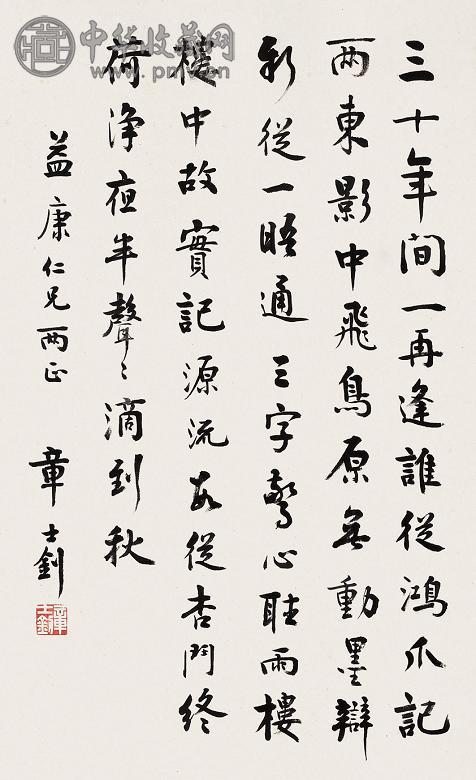 中华收藏网
www.pmv.cn
三十年間一再逢誰從鴻爪記
西東影中飛鳥原無動墨辯
新從一晤通 三字驚心聽雨樓
樓中故實記源流從杏鬥終
荷淨夜半聲〻滴到秋
益康仁兄兩正 章士釗
章士釗